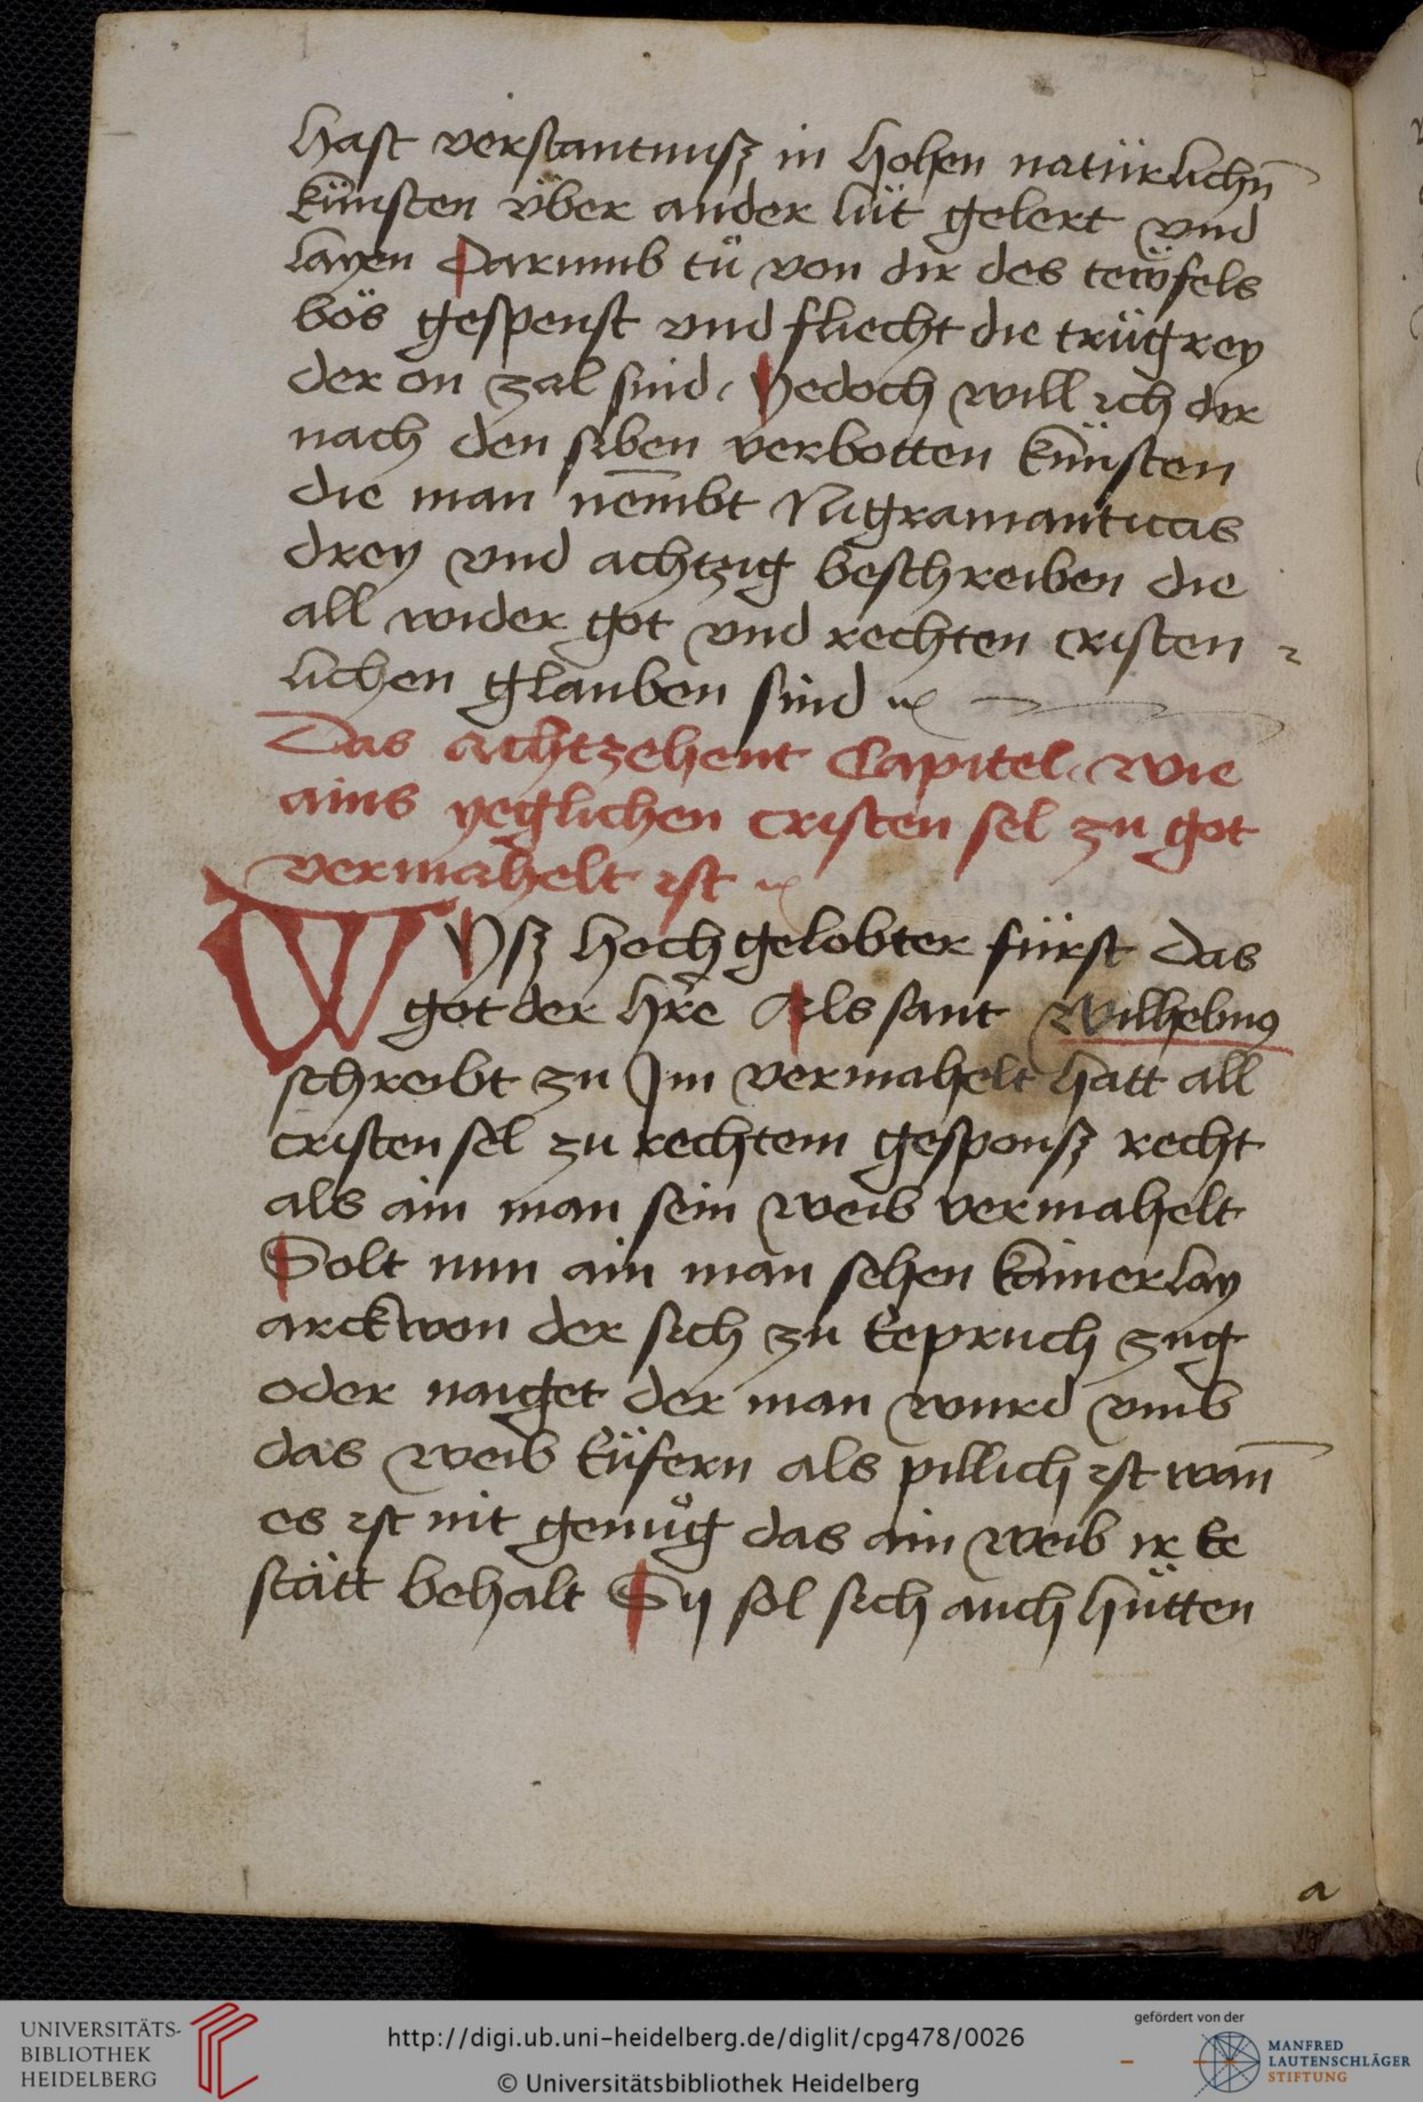 hast verstantnusz in hohen natürlichn̄
künsten über ander lüt gelert vnd
layen Darumb tů von dir des teẅfels
bös gespenst vnd fliecht die trügrey
der on zal sind. Yedoch will ich dir
nach den siben verbotten künsten
die man nem̄bt Nigramanticas
drey vnd achtzig beschreiben die
all wider got vnd rechten cristen
lichen glauben sind
Das achtzehent Capitel. wie
ains yeglichen cristen sel zu got
vermahelt ist
WYsz hochgelobter fürst das
got der hr̄e Als sant Wilhelmꝰ
schreibt zu Im vermahelt hatt all
cristen sel zu rechtem gesponsz recht
als ain man sein weib vermahelt
Solt nun ain man sehen kainerlay
arckwon der sich zu Eepruch zug
oder naiget der man wurd vmb
das weib Eüfern als pillich ist wan̄
es ist nit genůg das ain weib ir Ee
stätt behalt Sy sol sich auch hütten
a
UNIVERSITÄTS-
BIBLIOTHEK
HEIDELBERG
http://digi.ub.uni-heidelberg.de/diglit/cpg478/0026
© Universitätsbibliothek Heidelberg
gefördert von der
MANFRED
LAUTENSCHLÄGER
STIFTUNG